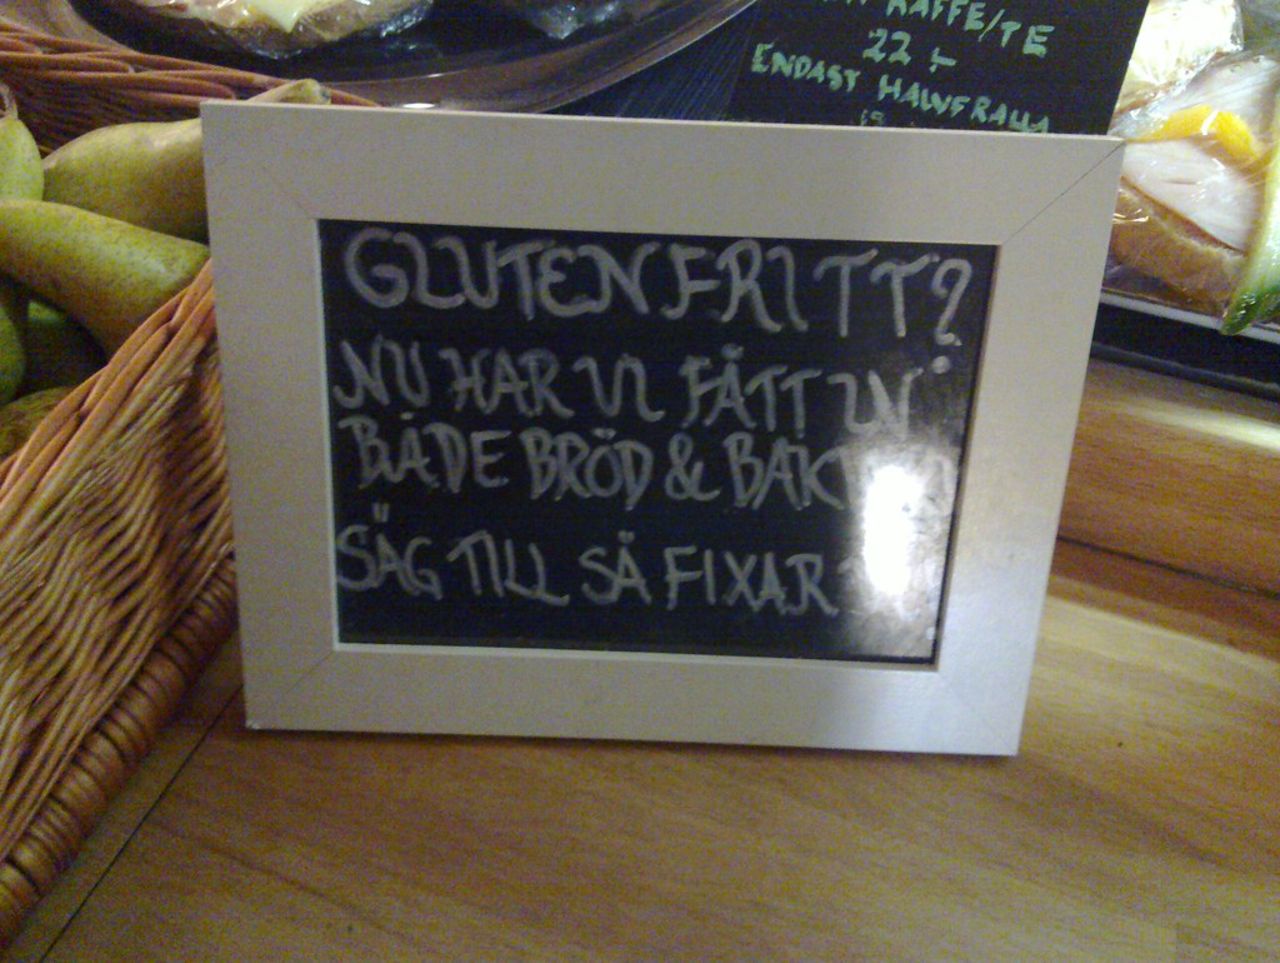 KAFFE/TE
22:-
ENDAST HALVFRALLA
GLUTENFRITT?
NU HAR VI FÅTT IN
BÅDE BRÖD & BAKVERK
SÄG TILL SÅ FIXAR